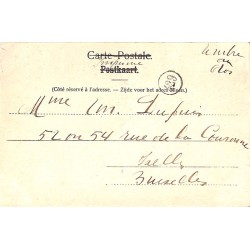 Carte Postale.
imprimé
Postkaart.
Timbre
au
dos
(Côté réservé à l'adresse. — Zijde voor het adres alleen.)
Mme Dupuis
52 ou 54 rue de la Couronne
Ixelles
Bruxelles